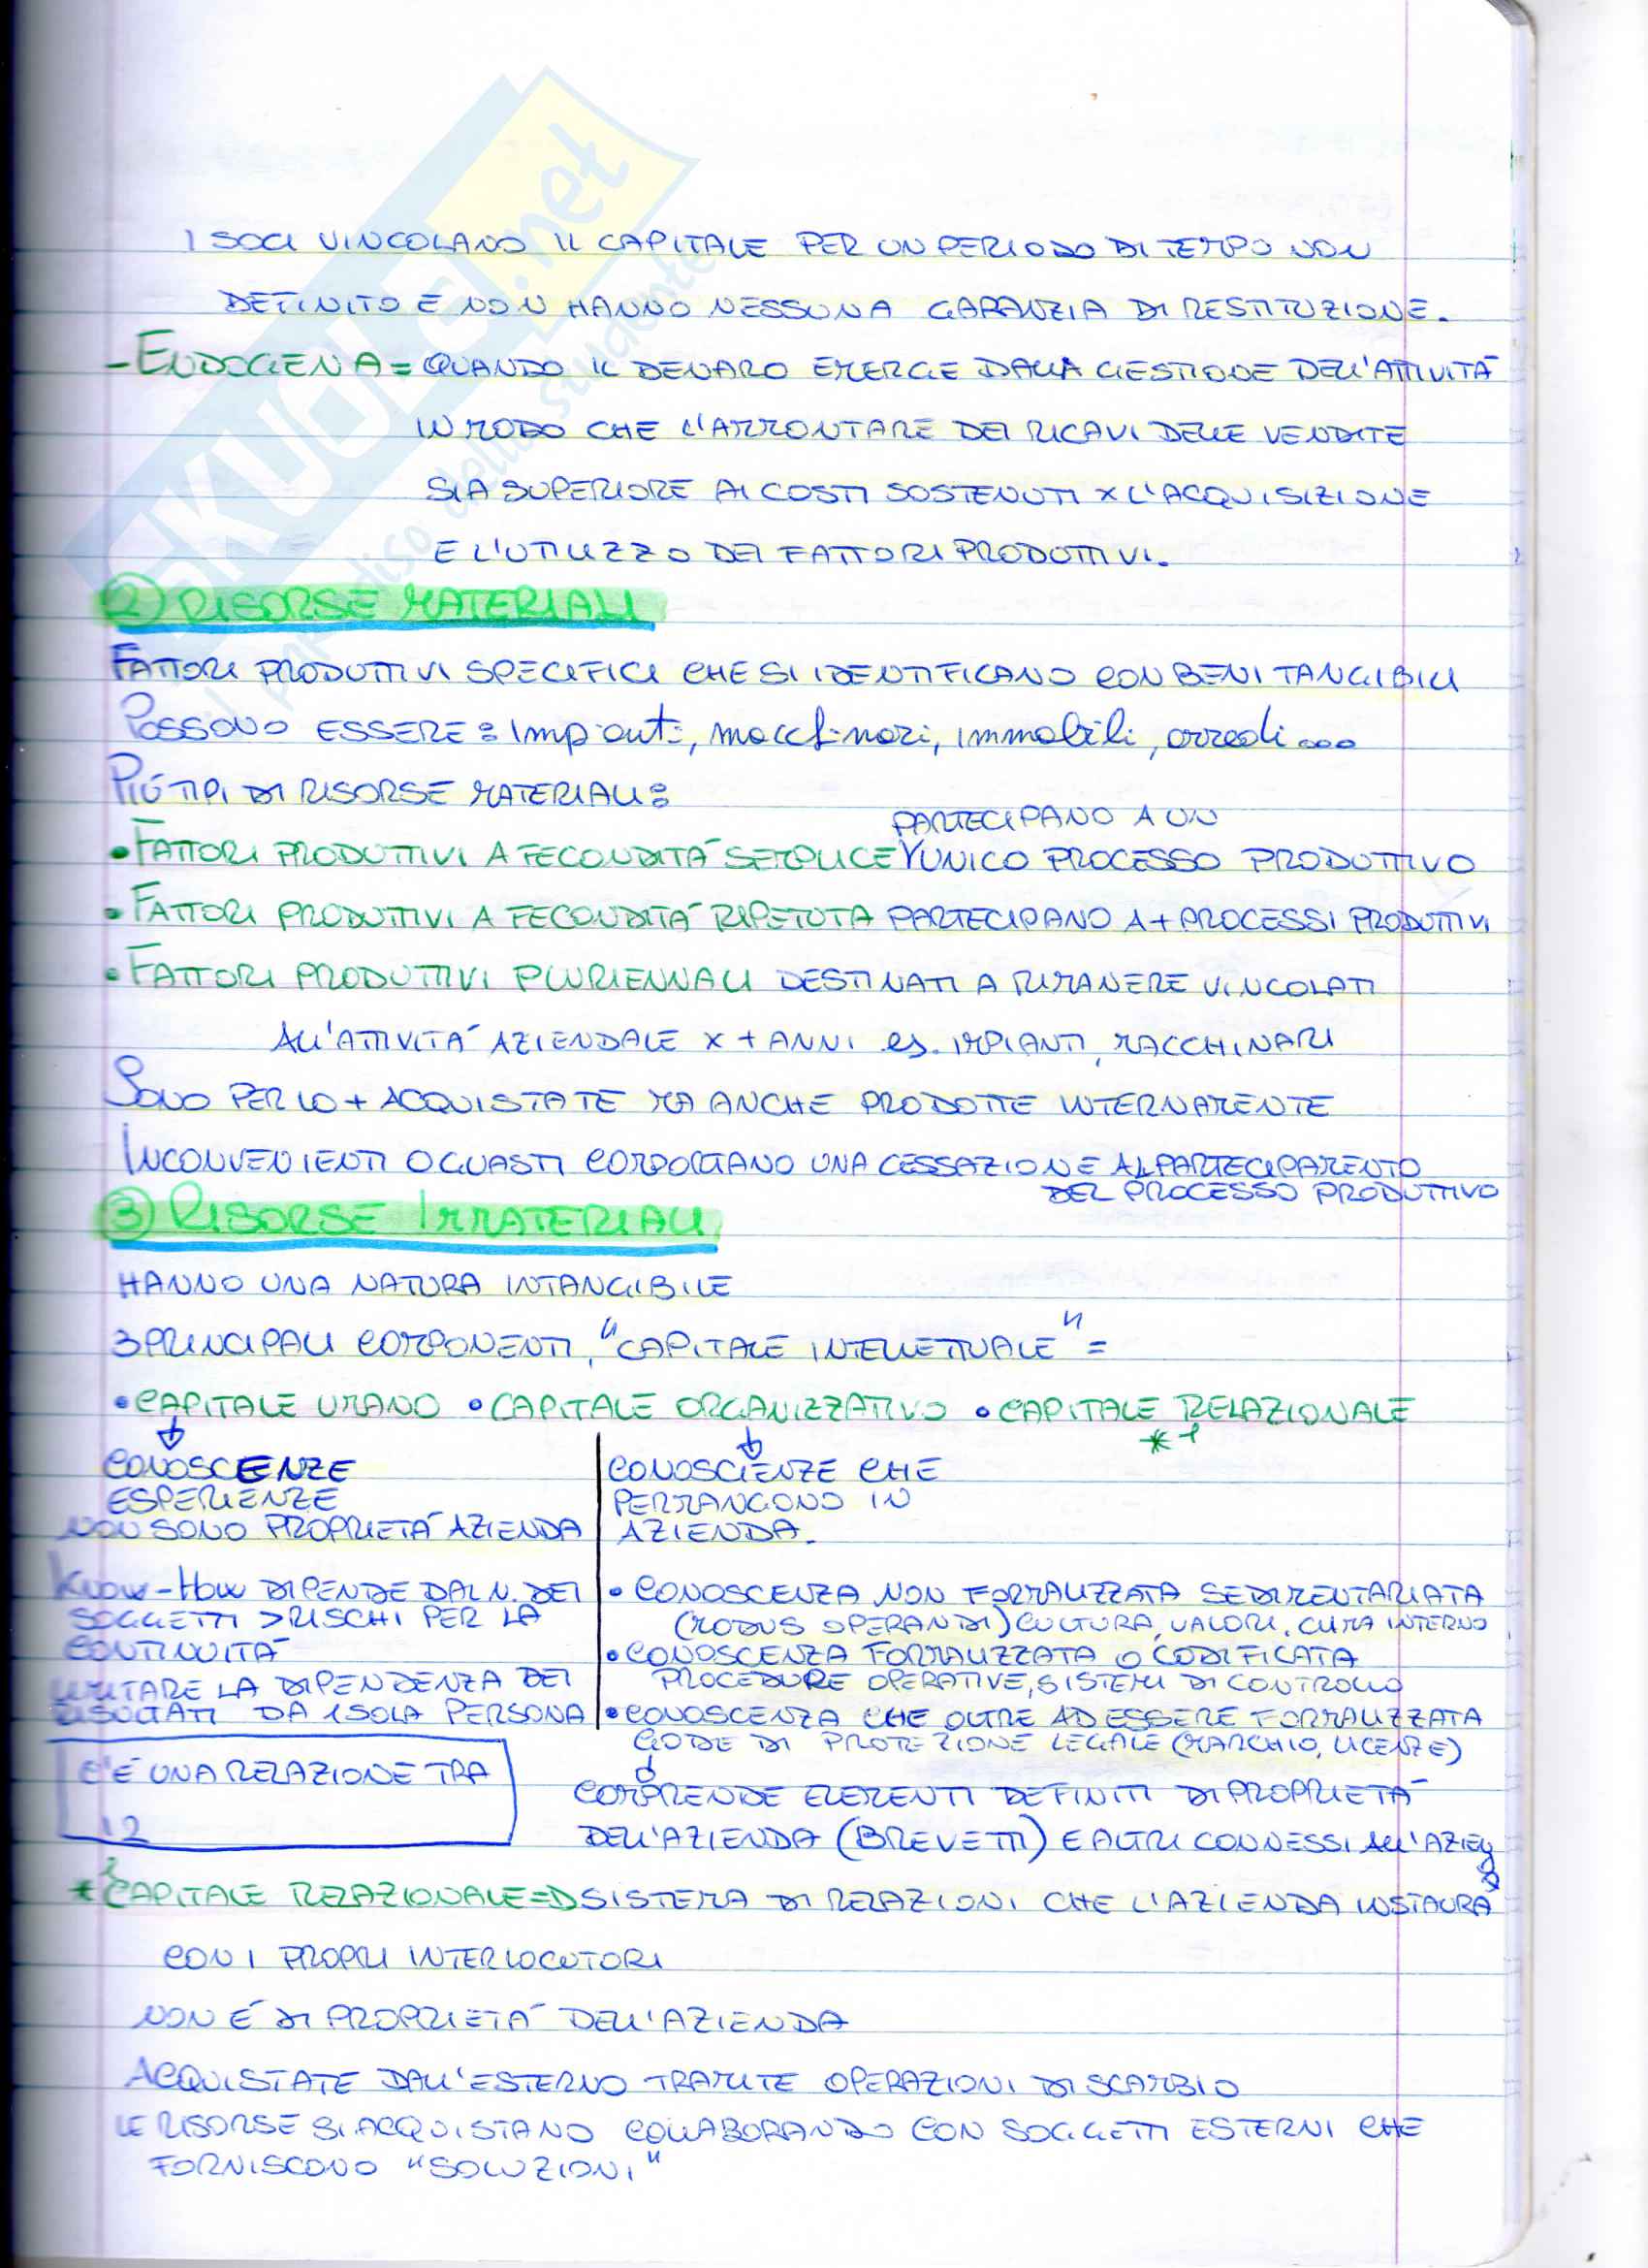 I SOCI VINCOLANO IL CAPITALE PER UN PERIODO DI TEMPO NON
DEFINITO E NON HANNO NESSUNA GARANZIA DI RESTITUZIONE.
- ENDOGENA = QUANDO IL DENARO EMERGE DALLA GESTIONE DELL'ATTIVITÀ
IN MODO CHE L'AMMONTARE DEI RICAVI DELLE VENDITE
SIA SUPERIORE AI COSTI SOSTENUTI X L'ACQUISIZIONE
E L'UTILIZZO DEI FATTORI PRODUTTIVI.
2) RISORSE MATERIALI
FATTORI PRODUTTIVI SPECIFICI CHE SI IDENTIFICANO CON BENI TANGIBILI
POSSONO ESSERE: Impianti, macchinari, immobili, arredi...
PIÙ TIPI DI RISORSE MATERIALI:
PARTECIPANO A UN
• FATTORI PRODUTTIVI A FECONDITÀ SEMPLICE UNICO PROCESSO PRODUTTIVO
• FATTORI PRODUTTIVI A FECONDITÀ RIPETUTA PARTECIPANO A + PROCESSI PRODUTTIVI
• FATTORI PRODUTTIVI PLURIENNALI DESTINATI A RIMANERE VINCOLATI
ALL'ATTIVITÀ AZIENDALE X + ANNI es. IMPIANTI, MACCHINARI
SONO PER LO + ACQUISTATE MA ANCHE PRODOTTE INTERNAMENTE
INCONVENIENTI O GUASTI COMPORTANO UNA CESSAZIONE AL PARTECIPAMENTO
DEL PROCESSO PRODUTTIVO
3) RISORSE IMMATERIALI
HANNO UNA NATURA INTANGIBILE
3 PRINCIPALI COMPONENTI, "CAPITALE INTELLETTUALE" =
• CAPITALE UMANO • CAPITALE ORGANIZZATIVO • CAPITALE RELAZIONALE
*1
CONOSCENZE
ESPERIENZE
NON SONO PROPRIETÀ AZIENDA
KNOW-HOW DIPENDE DAL N. DEI
SOGGETTI > RISCHI PER LA
CONTINUITÀ
LIMITARE LA DIPENDENZA DEI
RISULTATI DA 1 SOLA PERSONA
CONOSCIENZE CHE
PERMANGONO IN
AZIENDA.
• CONOSCENZA NON FORMALIZZATA SEDIMENTARIATA
(MODUS OPERANDI) CULTURA, VALORI, CLIMA INTERNO
• CONOSCENZA FORMALIZZATA O CODIFICATA
PROCEDURE OPERATIVE, SISTEMI DI CONTROLLO
• CONOSCENZA CHE OLTRE AD ESSERE FORMALIZZATA
GODE DI PROTEZIONE LEGALE (MARCHIO, LICENZE)
C'È UNA RELAZIONE TRA
1 2
COMPRENDE ELEMENTI DEFINITI DI PROPRIETÀ
DELL'AZIENDA (BREVETTI) E ALTRI CONNESSI ALL'AZIEN
DA
*1 CAPITALE RELAZIONALE => SISTEMA DI RELAZIONI CHE L'AZIENDA INSTAURA
CON I PROPRI INTERLOCUTORI
NON È DI PROPRIETÀ DELL'AZIENDA
ACQUISTATE DALL'ESTERNO TRAMITE OPERAZIONI DI SCAMBIO
LE RISORSE SI ACQUISTANO COLLABORANDO CON SOGGETTI ESTERNI CHE
FORNISCONO "SOLUZIONI"
SKUOLA.net
il paradiso dello studente